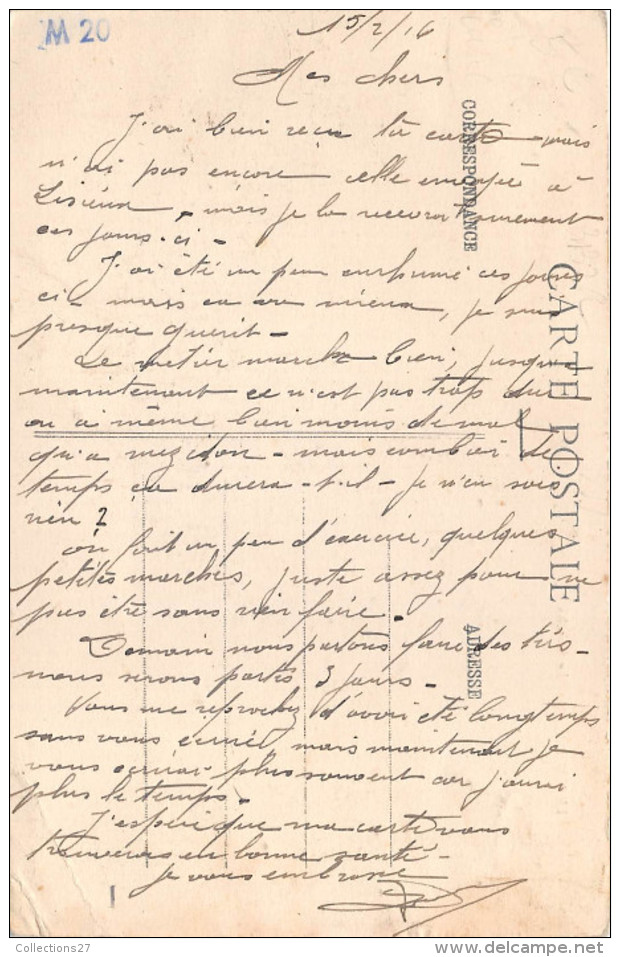 M 20
15/2/16
Mes chers
J'ai bien reçu ta carte mais
n'ai pas encore celle envoyée à
Lisieux, mais je la recevrai surement
ces jours-ci -
J'ai été un peu enrhumé ces jours
ci - mais ça va mieux, je suis
presque guerit -
Le metier marche bien, jusqu'
maintenant ce n'est pas trop dur
on a même bien moins de mal
qu'a - mais combien de
temps ça durera-t-il - je n'en sais
rien ?
on fait un peu d'exercice, quelques
petites marches, juste assez pour ne
pas être sans rien faire.
Demain nous partons faire des tirs -
nous serons partis 3 jours -
Vous me reprochez d'avoir été longtemps
sans vous écrire, mais maintenant je
vous écrirai plus souvent car j'aurai
plus le temps -
J'espère que ma carte vous
trouveras en bonne santé -
je vous embrasse
CORRESPONDANCE
CARTE POSTALE
ADRESSE
Collections27
www.delcampe.net